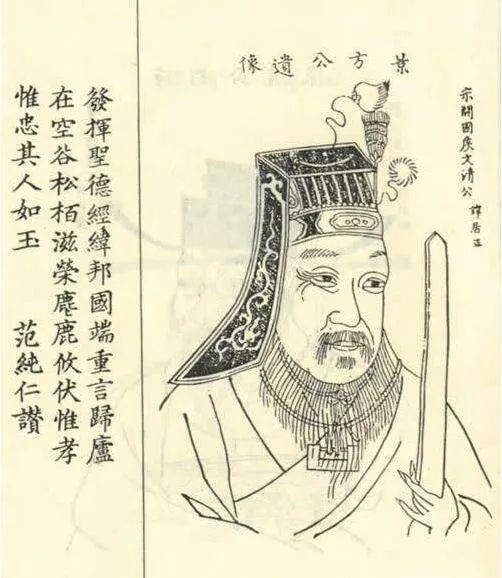 景方公遺像
宋開國侯文清公 諱居正
發揮聖德經緯邦國端重言歸廬
在空谷松柏滋榮麀鹿攸伏惟孝
惟忠其人如玉 范純仁讚